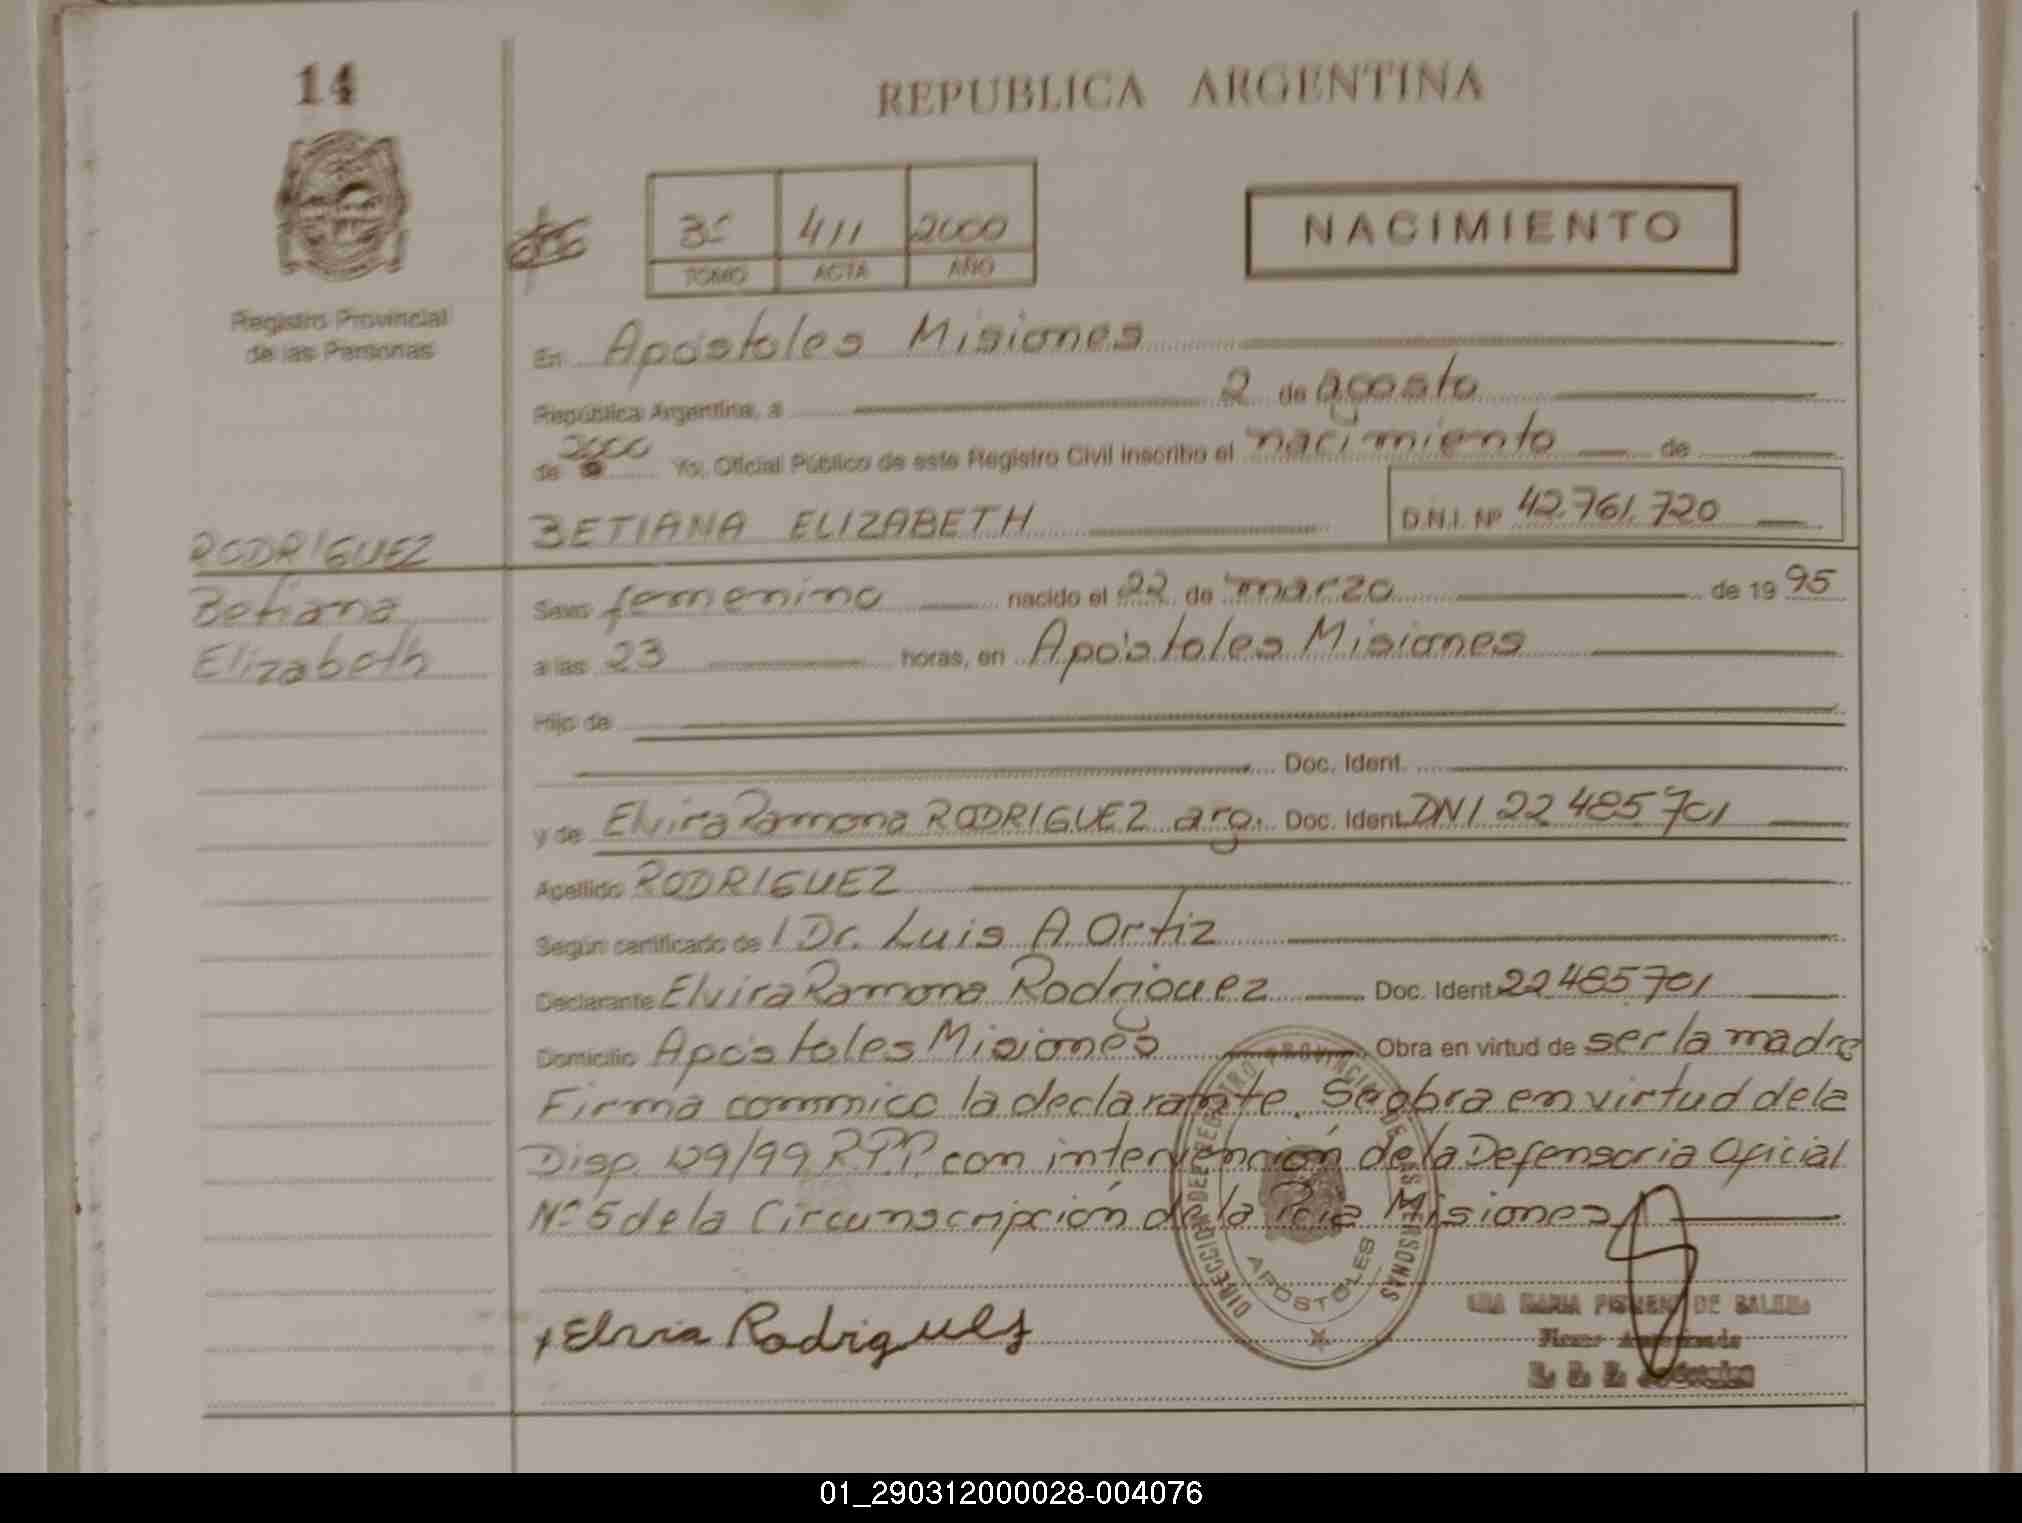 14
REPUBLICA ARGENTINA
3º 411 2000
TOMO ACTA AÑO
NACIMIENTO
Registro Provincial
de las Personas
En Apóstoles Misiones
República Argentina, a 2 de agosto
de 2000 Yo, Oficial Público de este Registro Civil inscribo el nacimiento de
BETIANA ELIZABETH D.N.I. Nº 42.761.720
RODRIGUEZ
Betiana
Elizabeth
Sexo femenino nacido el 22 de marzo de 19 95
a las 23 horas, en Apóstoles Misiones
Hijo de
Doc. Ident.
y de Elvira Ramona RODRIGUEZ arg. Doc. Ident. DNI 22485701
Apellido RODRIGUEZ
Según certificado de Dr. Luis A Ortiz
Declarante Elvira Ramona Rodriguez Doc. Ident. 22485701
Domicilio Apóstoles Misiones Obra en virtud de ser la madre
Firma conmico la declarante. Se obra en virtud de la
Disp. 129/99 con intervención de la Defensoria Oficial
Nº 5 de la Circunscripción de la Pcia Misiones
DIRECCION DE REGISTRO PROVINCIAL DE LAS PERSONAS
APOSTOLES
x Elvia Rodrigues
MARIA DE
01_290312000028-004076